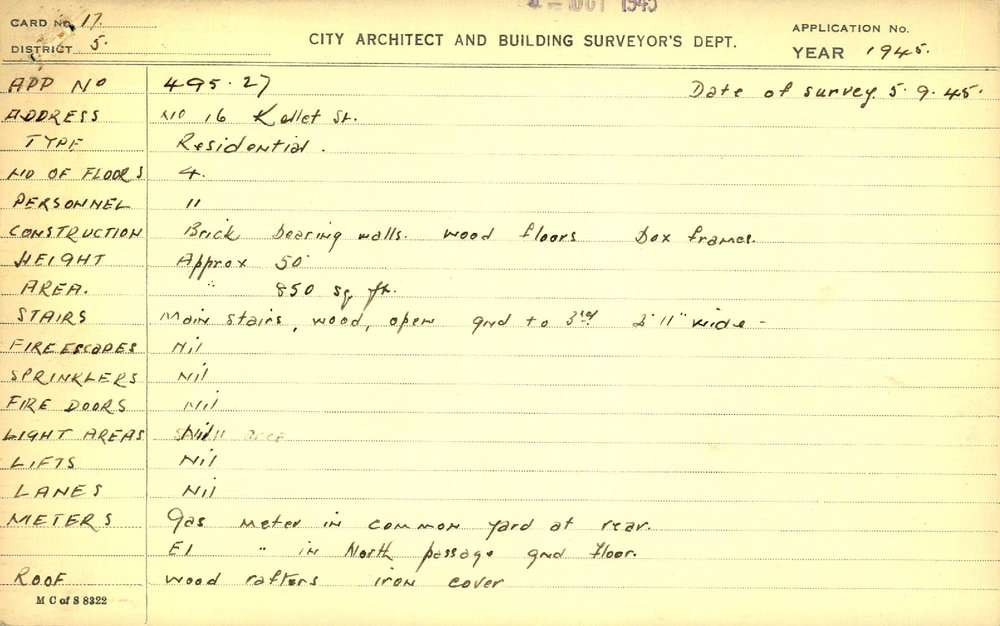 OCT 1945
CARD No. 17.
DISTRICT 5.
CITY ARCHITECT AND BUILDING SURVEYOR'S DEPT.
APPLICATION No.
YEAR 1945.
APP No 495.27 Date of survey 5.9.45.
ADDRESS No 16 Kellet St.
TYPE Residential.
NO OF FLOORS 4.
PERSONNEL 11
CONSTRUCTION Brick bearing walls. wood floors box frames.
HEIGHT Approx 50'
AREA. " 850 sq ft.
STAIRS Main stairs, wood, open gnd to 3rd 2'11" wide -
FIRE ESCAPES Nil
SPRINKLERS Nil
FIRE DOORS Nil
LIGHT AREAS Nil
LIFTS Nil
LANES Nil
METERS Gas meter in common yard at rear.
El " in North passage gnd floor.
ROOF wood rafters iron cover
M C of S 8322